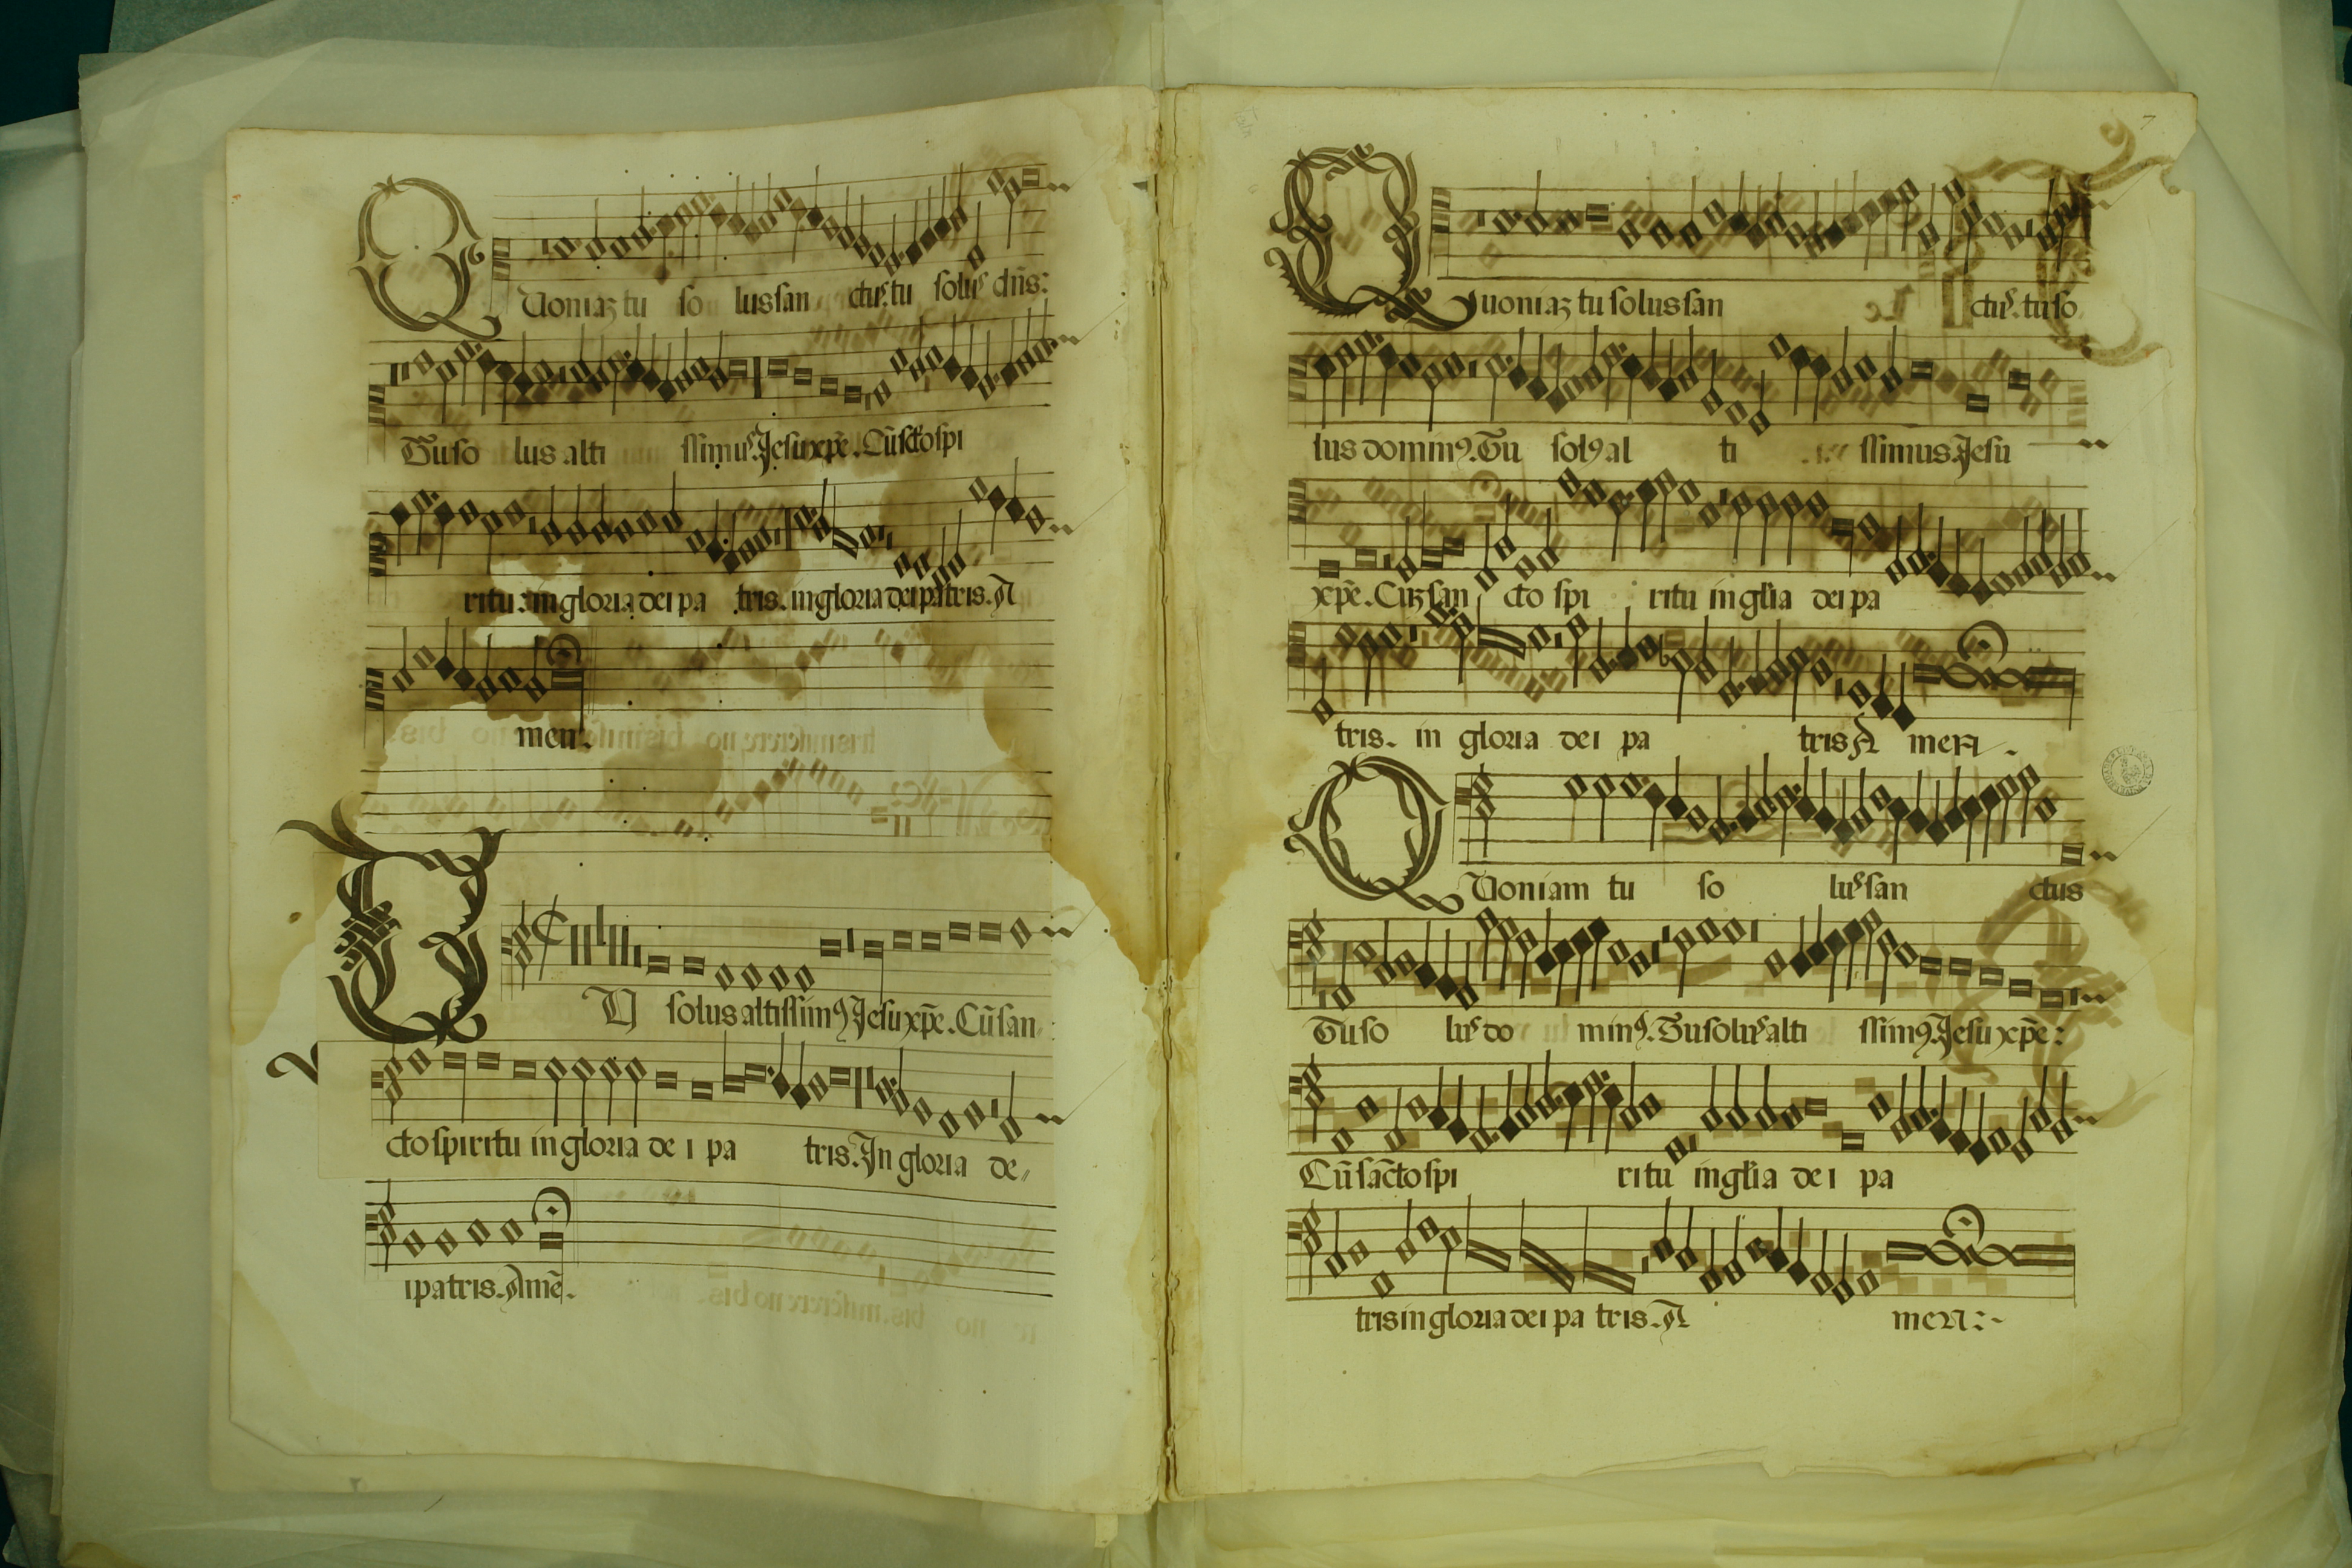 Quoniaz tu so lus san ctus. tu solus dn̄s:
Tu so lus alti ssimus. Jesu xp̄e. Cū sctō spi
ritu: in gloria dei pa tris. in gloria dei patris. A
men.
TU solus altissimꝰ Jesu xp̄e. Cū san
cto spiritu in gloria de i pa tris. In gloria de
i patris. Amē.
7
Quoniaz tu solus san ctus. tu so
lus dominꝰ. Tu solꝰ al ti ssimus. Jesu
xp̄e. Cuz san cto spi ritu in gl̄ia dei pa
tris. in gloria dei pa tris A men.
QUoniam tu so lus san ctus
Tu so lus do minꝰ. Tu solus alti ssimꝰ. Jesu xp̄e:
Cū sāctospi ritu in gl̄ia de i pa
tris in gloria dei pa tris. A men:~